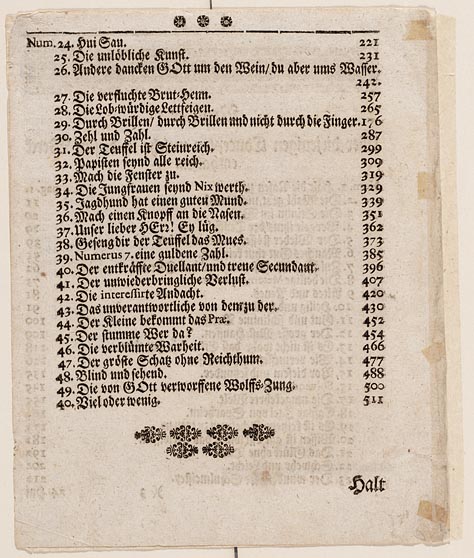 Num. 24. Hui Sau. 221
25. Die unlöbliche Kunst. 231
26. Andere dancken GOtt um den Wein/ du aber ums Wasser.
242.
27. Die verfluchte Brut-Henn. 257
28. Die Lob-würdige Lettfeigen. 265
29. Durch Brillen/ durch Brillen und nicht durch die Finger. 176
30. Zehl und Zahl. 287
31. Der Teuffel ist Steinreich. 299
32. Papisten seynd alle reich. 309
33. Mach die Fenster zu. 319
34. Die Jungfrauen seynd Nix werth. 329
35. Jagdhund hat einen guten Mund. 339
36. Mach einen Knopff an die Nasen. 351
37. Unser lieber HErz! Ey lüg. 362
38. Geseng dir der Teuffel das Mues. 373
39. Numerus 7. eine guldene Zahl. 385
40. Der entkräffte Duellant/ und treue Secundant. 396
41. Der unwiederbringliche Verlust. 407
42. Die interessirte Andacht. 420
43. Das unverantwortliche von dem zu der. 430
44. Der Kleine bekommt das Præ. 452
45. Der stumme Wer da? 454
46. Die verblümte Warheit. 466
47. Der gröste Schatz ohne Reichthum. 477
48. Blind und sehend. 488
49. Die von GOtt verworffene Wolffs-Zung. 500
40. Viel oder wenig. 511
Halt